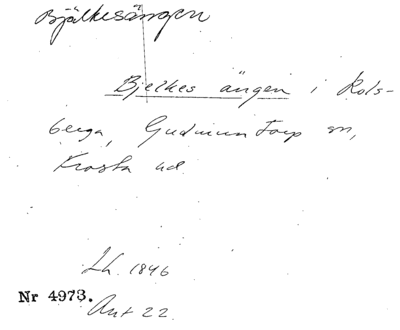 Bjälkesängen
Bjelkes ängen i Rols-
berga, Gudmuntorp sn,
Frosta hd
Lh. 1846
Nr 4973.
Ant 22.